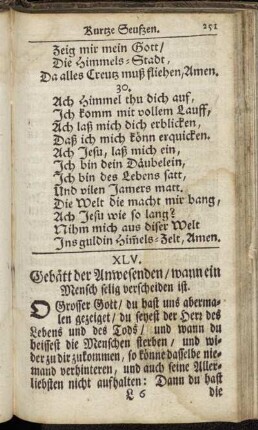 Kurtze Seufzen. 251
Zeig mir mein Gott/
Die Himmels-Stadt,
Da alles Creutz muß fliehen, Amen.
30.
Ach Himmel thu dich auf,
Ich komm mit vollem Lauff,
Ach laß mich dich erblicken,
Daß ich mich könn erquicken.
Ach Jesu, laß mich ein,
Ich bin dein Däubelein,
Ich bin des Lebens satt,
Und vilen Jamers matt.
Die Welt die macht mir bang,
Ach Jesu wie so lang?
Nihm mich aus diser Welt
Ins guldin Him̃els-Zelt, Amen.
XLV.
Gebätt der Anwesenden/ wann ein
Mensch selig verscheiden ist.
O Grosser Gott/ du hast uns aberma-
len gezeiget/ du seyest der Herr des
Lebens und des Tods/ und wann du
heissest die Menschen sterben/ und wi-
der zu dir zukommen, so könne dasselbe nie-
mand verhinteren, und auch seine Aller-
liebsten nicht aufhalten: Dann du hast
L 6 die